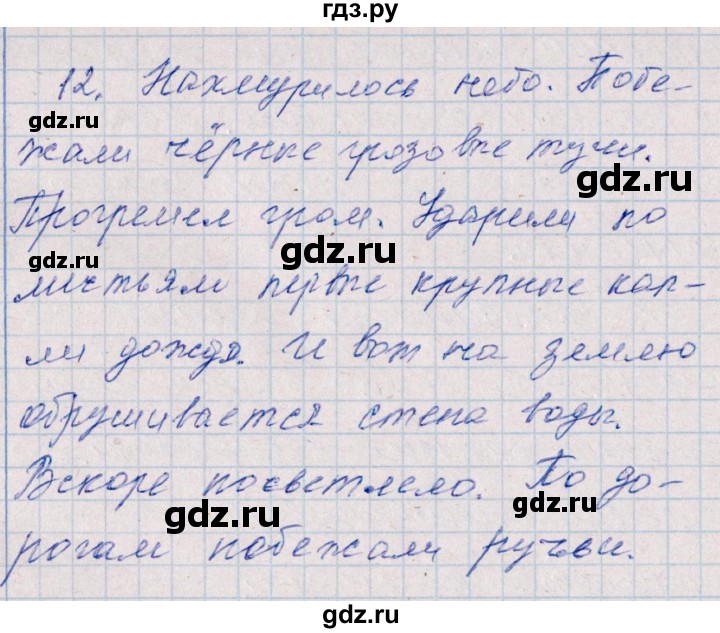 гдз.ру
12. Нахмурилось небо. Побе-
gdz.ru
жали чёрные грозовые тучи.
gdz.ru
Прогремел гром. Ударили по
gdz.ru
gdz.ru
листьям первые крупные кап-
ли дождя. И вот на землю
gdz.ru
gdz.ru
обрушивается стена воды.
Вскоре посветлело. По до-
gdz.ru
gdz.ru
рогам побежали ручьи.
gdz.ru